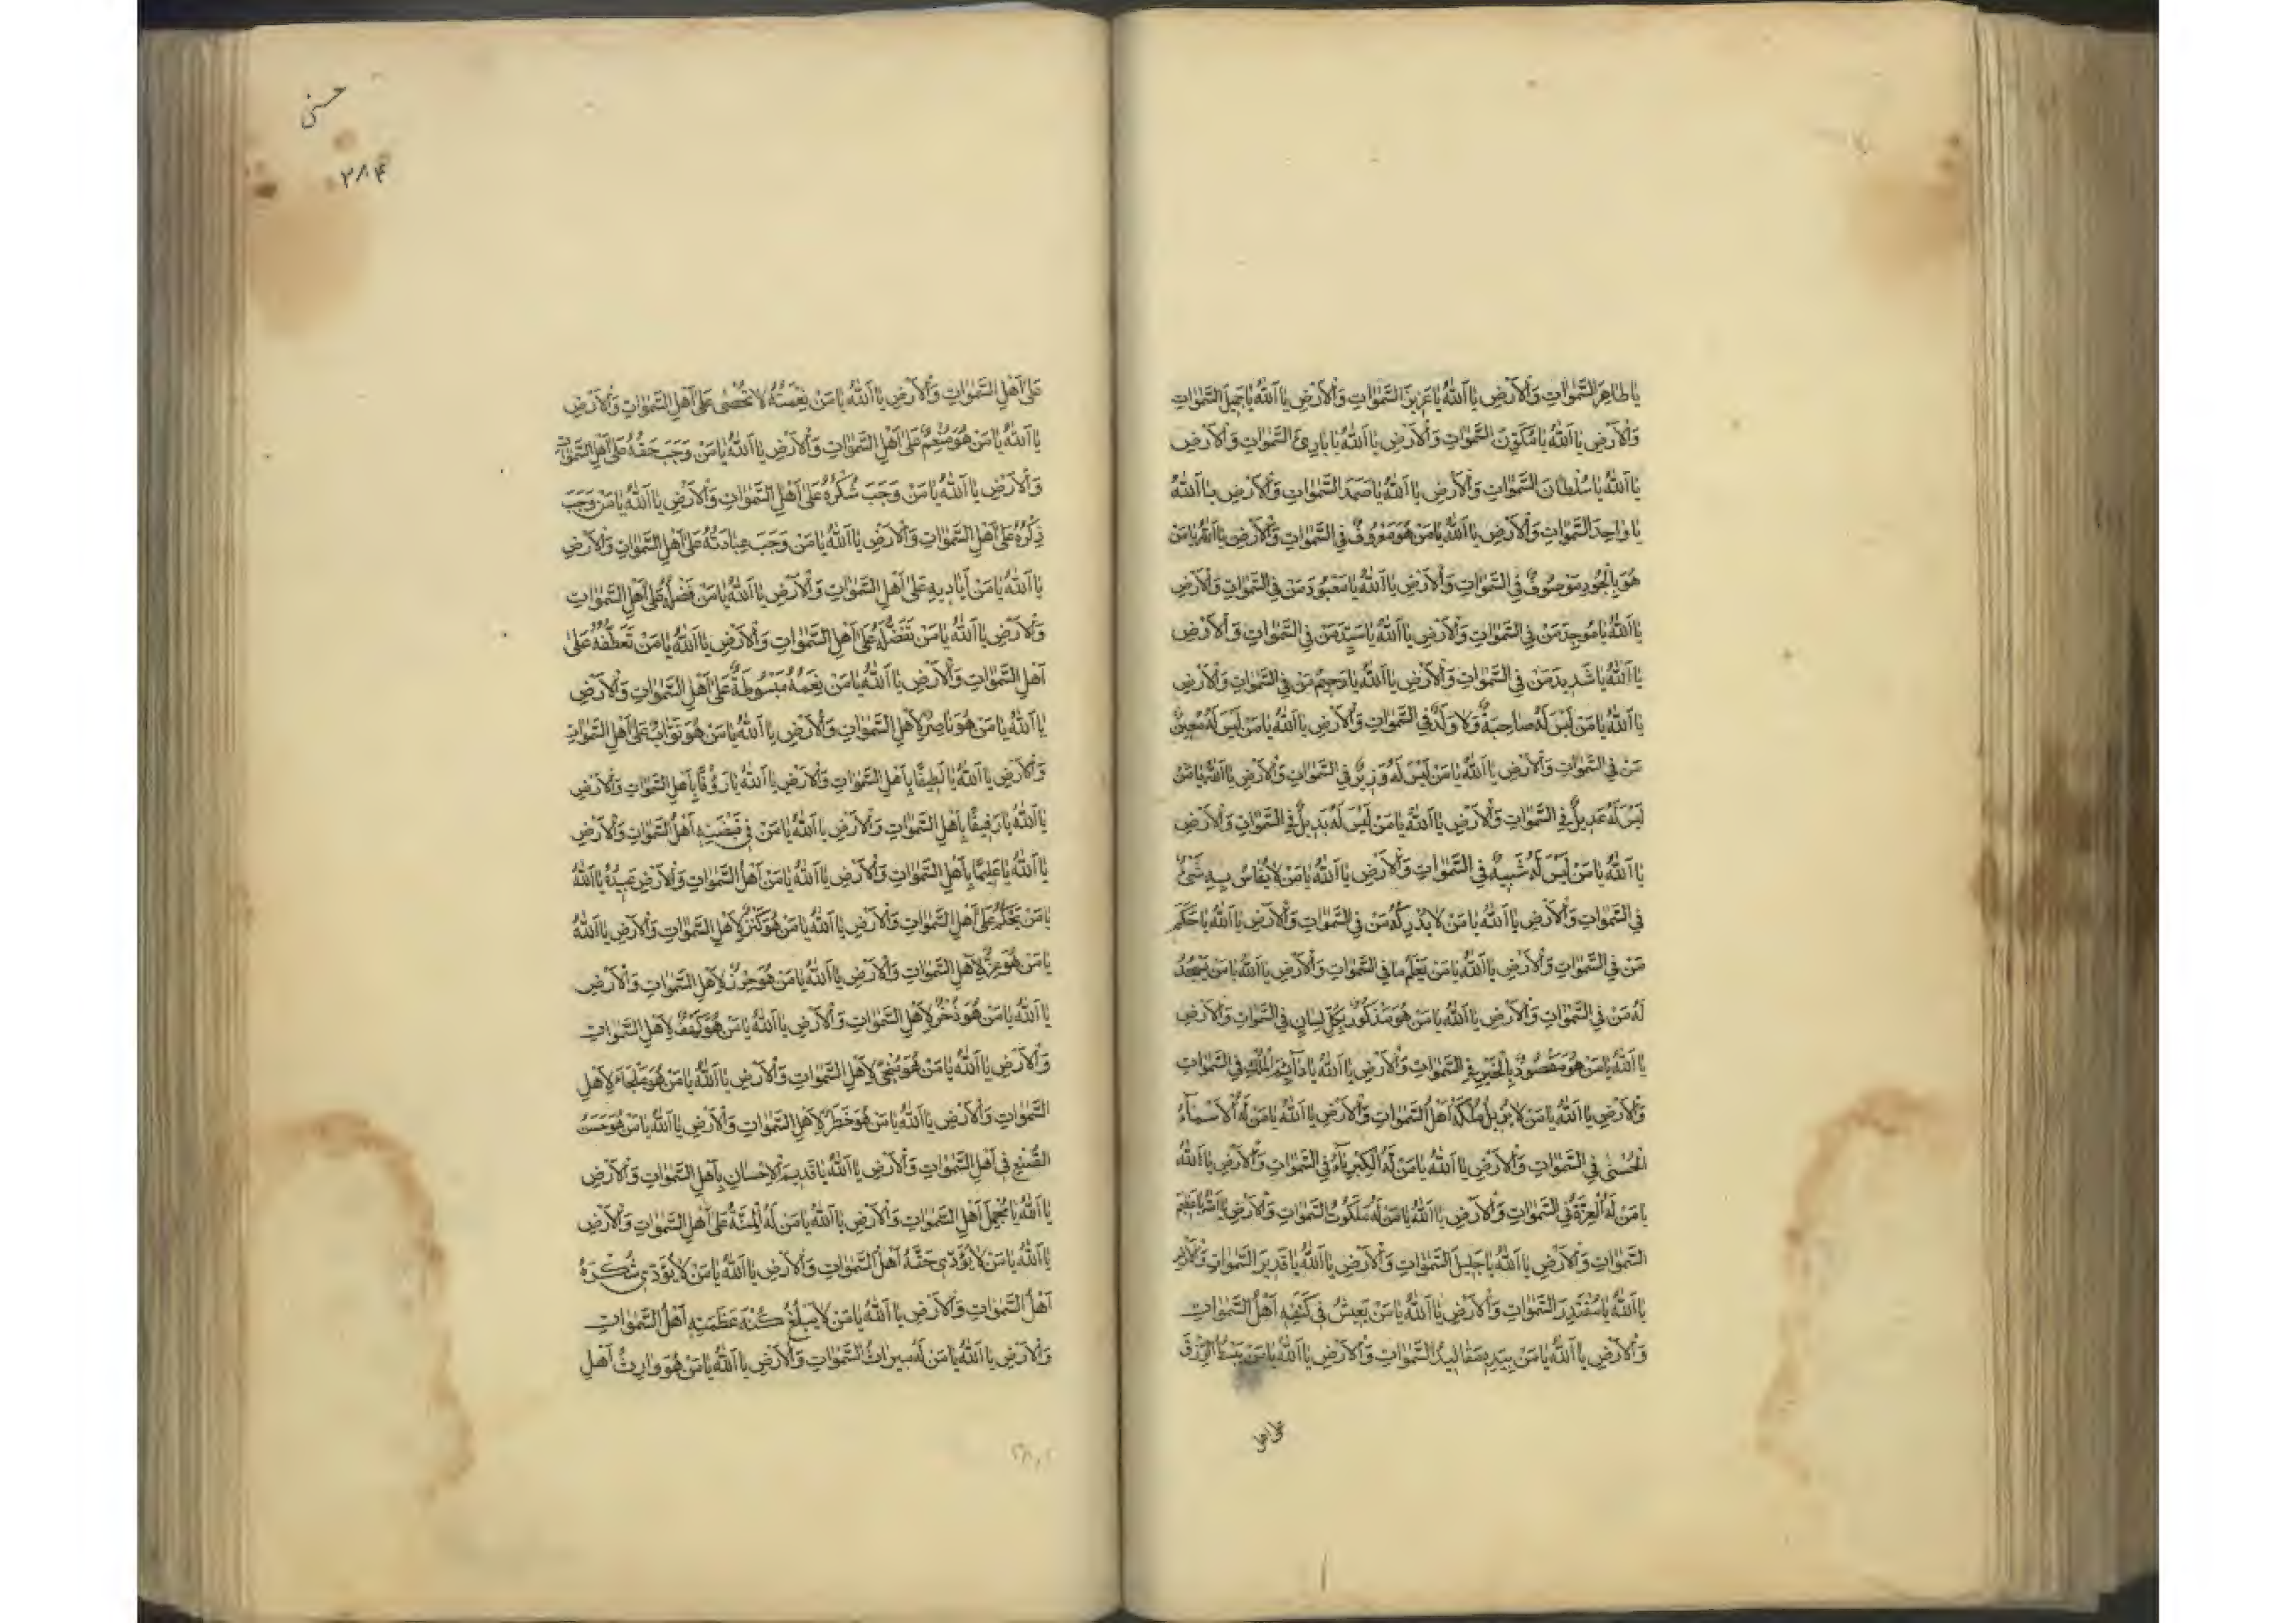 يا طاهر السموات والأرض يا الله يا عزيز السموات والأرض يا الله يا جميل السموات
والأرض يا الله يا مكون السموات والأرض يا الله يا بارئ السموات والأرض
يا الله يا سلطان السموات والأرض يا الله يا صمد السموات والأرض يا الله
يا واحد السموات والأرض يا الله يا من هو معروف في السموات والأرض يا الله يا من
هو بالجود موصوف في السموات والأرض يا الله يا معبود من في السموات والأرض
يا الله يا موجد من في السموات والأرض يا الله يا سيد من في السموات والأرض
يا الله يا شديد من في السموات والأرض يا الله يا رحيم من في السموات والأرض
يا الله يا من ليس له صاحبة ولا ولد في السموات والأرض يا الله يا من ليس له معين
من في السموات والأرض يا الله يا من ليس له وزير في السموات والأرض يا الله يا من
ليس له عديل في السموات والأرض يا الله يا من ليس له بديل في السموات والأرض
يا الله يا من ليس له شبيه في السموات والأرض يا الله يا من لا يقاس به شئ
في السموات والأرض يا الله يا من لا يدركه من في السموات والأرض يا الله يا حكم
من في السموات والأرض يا الله يا من يعلم ما في السموات والأرض يا الله يا من يسجد
له من في السموات والأرض يا الله يا من هو مذكور بكل لسان في السموات والأرض
يا الله يا من هو مقصود بالخير في السموات والأرض يا الله يا دائم الملك في السموات
والأرض يا الله يا من لا يزيل ملكه أهل السموات والأرض يا الله يا من له الأسماء
الحسنى في السموات والأرض يا الله يا من له الكبرياء في السموات والأرض يا الله
يا من له العزة في السموات والأرض يا الله يا من له ملكوت السموات والأرض يا الله يا عظيم
السموات والأرض يا الله يا جليل السموات والأرض يا الله يا قدير السموات والأرض
يا الله يا مقتدر السموات والأرض يا الله يا من يعيش في كنفه أهل السموات
والأرض يا الله يا من بيده مقاليد السموات والأرض يا الله يا من يبسط الرزق
على اهل
حسنى
٣٨٤
على أهل السموات والأرض يا الله يا من نعمته لا تحصى على أهل السموات والأرض
يا الله يا من هو منعم على أهل السموات والأرض يا الله يا من وجب حقه على أهل السموات
والأرض يا الله يا من وجب شكره على أهل السموات والأرض يا الله يا من وجب
ذكره على أهل السموات والأرض يا الله يا من وجب عبادته على أهل السموات والأرض
يا الله يا من أياديه على أهل السموات والأرض يا الله يا من فضله على أهل السموات
والأرض يا الله يا من تفضله على أهل السموات والأرض يا الله يا من تعطفه على
أهل السموات والأرض يا الله يا من نعمه مبسوطة على أهل السموات والأرض
يا الله يا من هو ناصر لأهل السموات والأرض يا الله يا من هو تواب على أهل السموات
والأرض يا الله يا لطيفا بأهل السموات والأرض يا الله يا رؤفا بأهل السموات والأرض
يا الله يا رفيقا بأهل السموات والأرض يا الله يا من في قبضته أهل السموات والأرض
يا الله يا عليما بأهل السموات والأرض يا الله يا من أهل السموات والأرض عبيده يا الله
يا من يحكم على أهل السموات والأرض يا الله يا من هو كنز لأهل السموات والأرض يا الله
يا من هو عز لأهل السموات والأرض يا الله يا من هو حرز لأهل السموات والأرض
يا الله يا من هو ذخر لأهل السموات والأرض يا الله يا من هو كهف لأهل السموات
والأرض يا الله يا من هو منجى لأهل السموات والأرض يا الله يا من هو ملجاء لأهل
السموات والأرض يا الله يا من هو خطر لأهل السموات والأرض يا الله يا من هو حسن
الصنع في أهل السموات والأرض يا الله يا قديم الإحسان بأهل السموات والأرض
يا الله يا مجمل أهل السموات والأرض يا الله يا من له المنة على أهل السموات والأرض
يا الله يا من لا يؤدي حقه أهل السموات والأرض يا الله يا من لا يؤدي شكره
أهل السموات والأرض يا الله يا من لا يبلغ كنه عظمته أهل السموات
والأرض يا الله يا من له ميراث السموات والأرض يا الله يا من هو وارث أهل